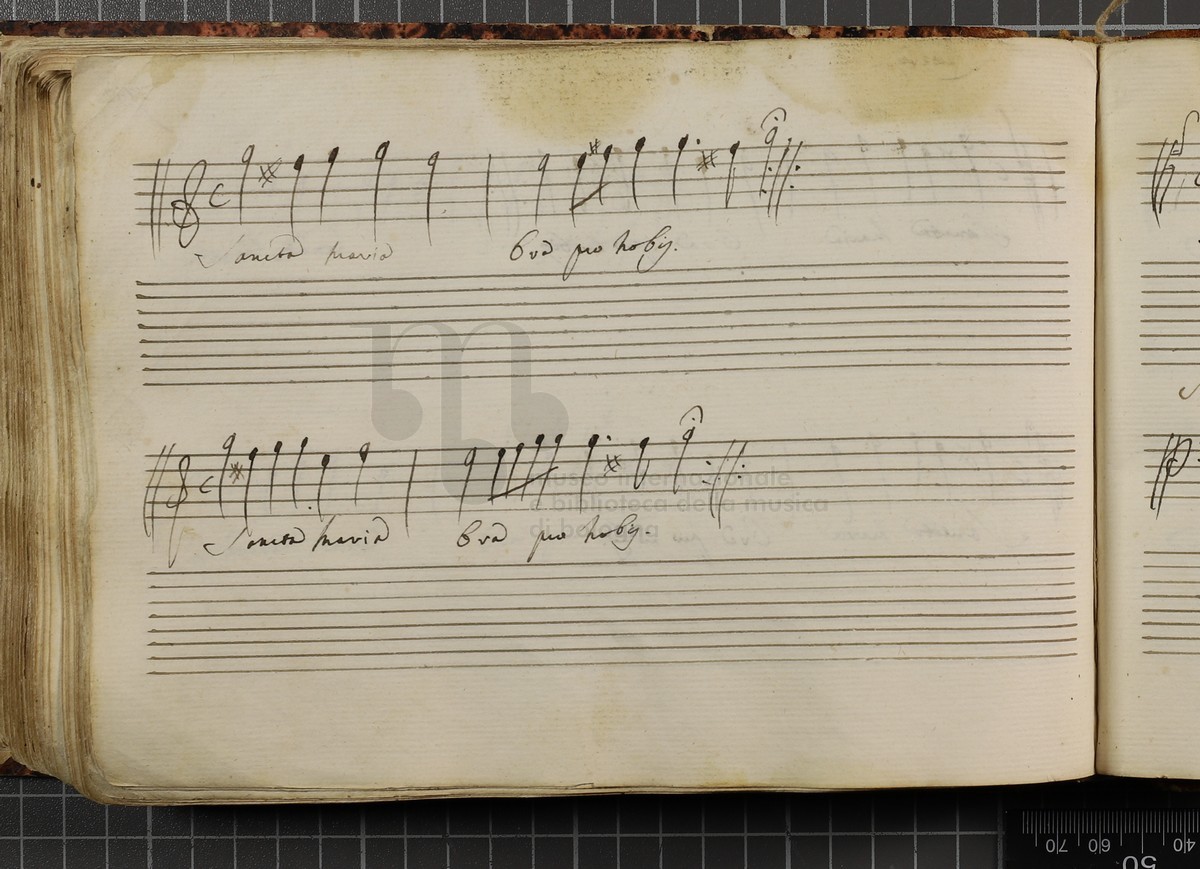 Sancta Maria Ora pro nobis.
Sancta Maria Ora pro nobis.
museo internazionale
e biblioteca della musica
di bologna
70 60 50 40